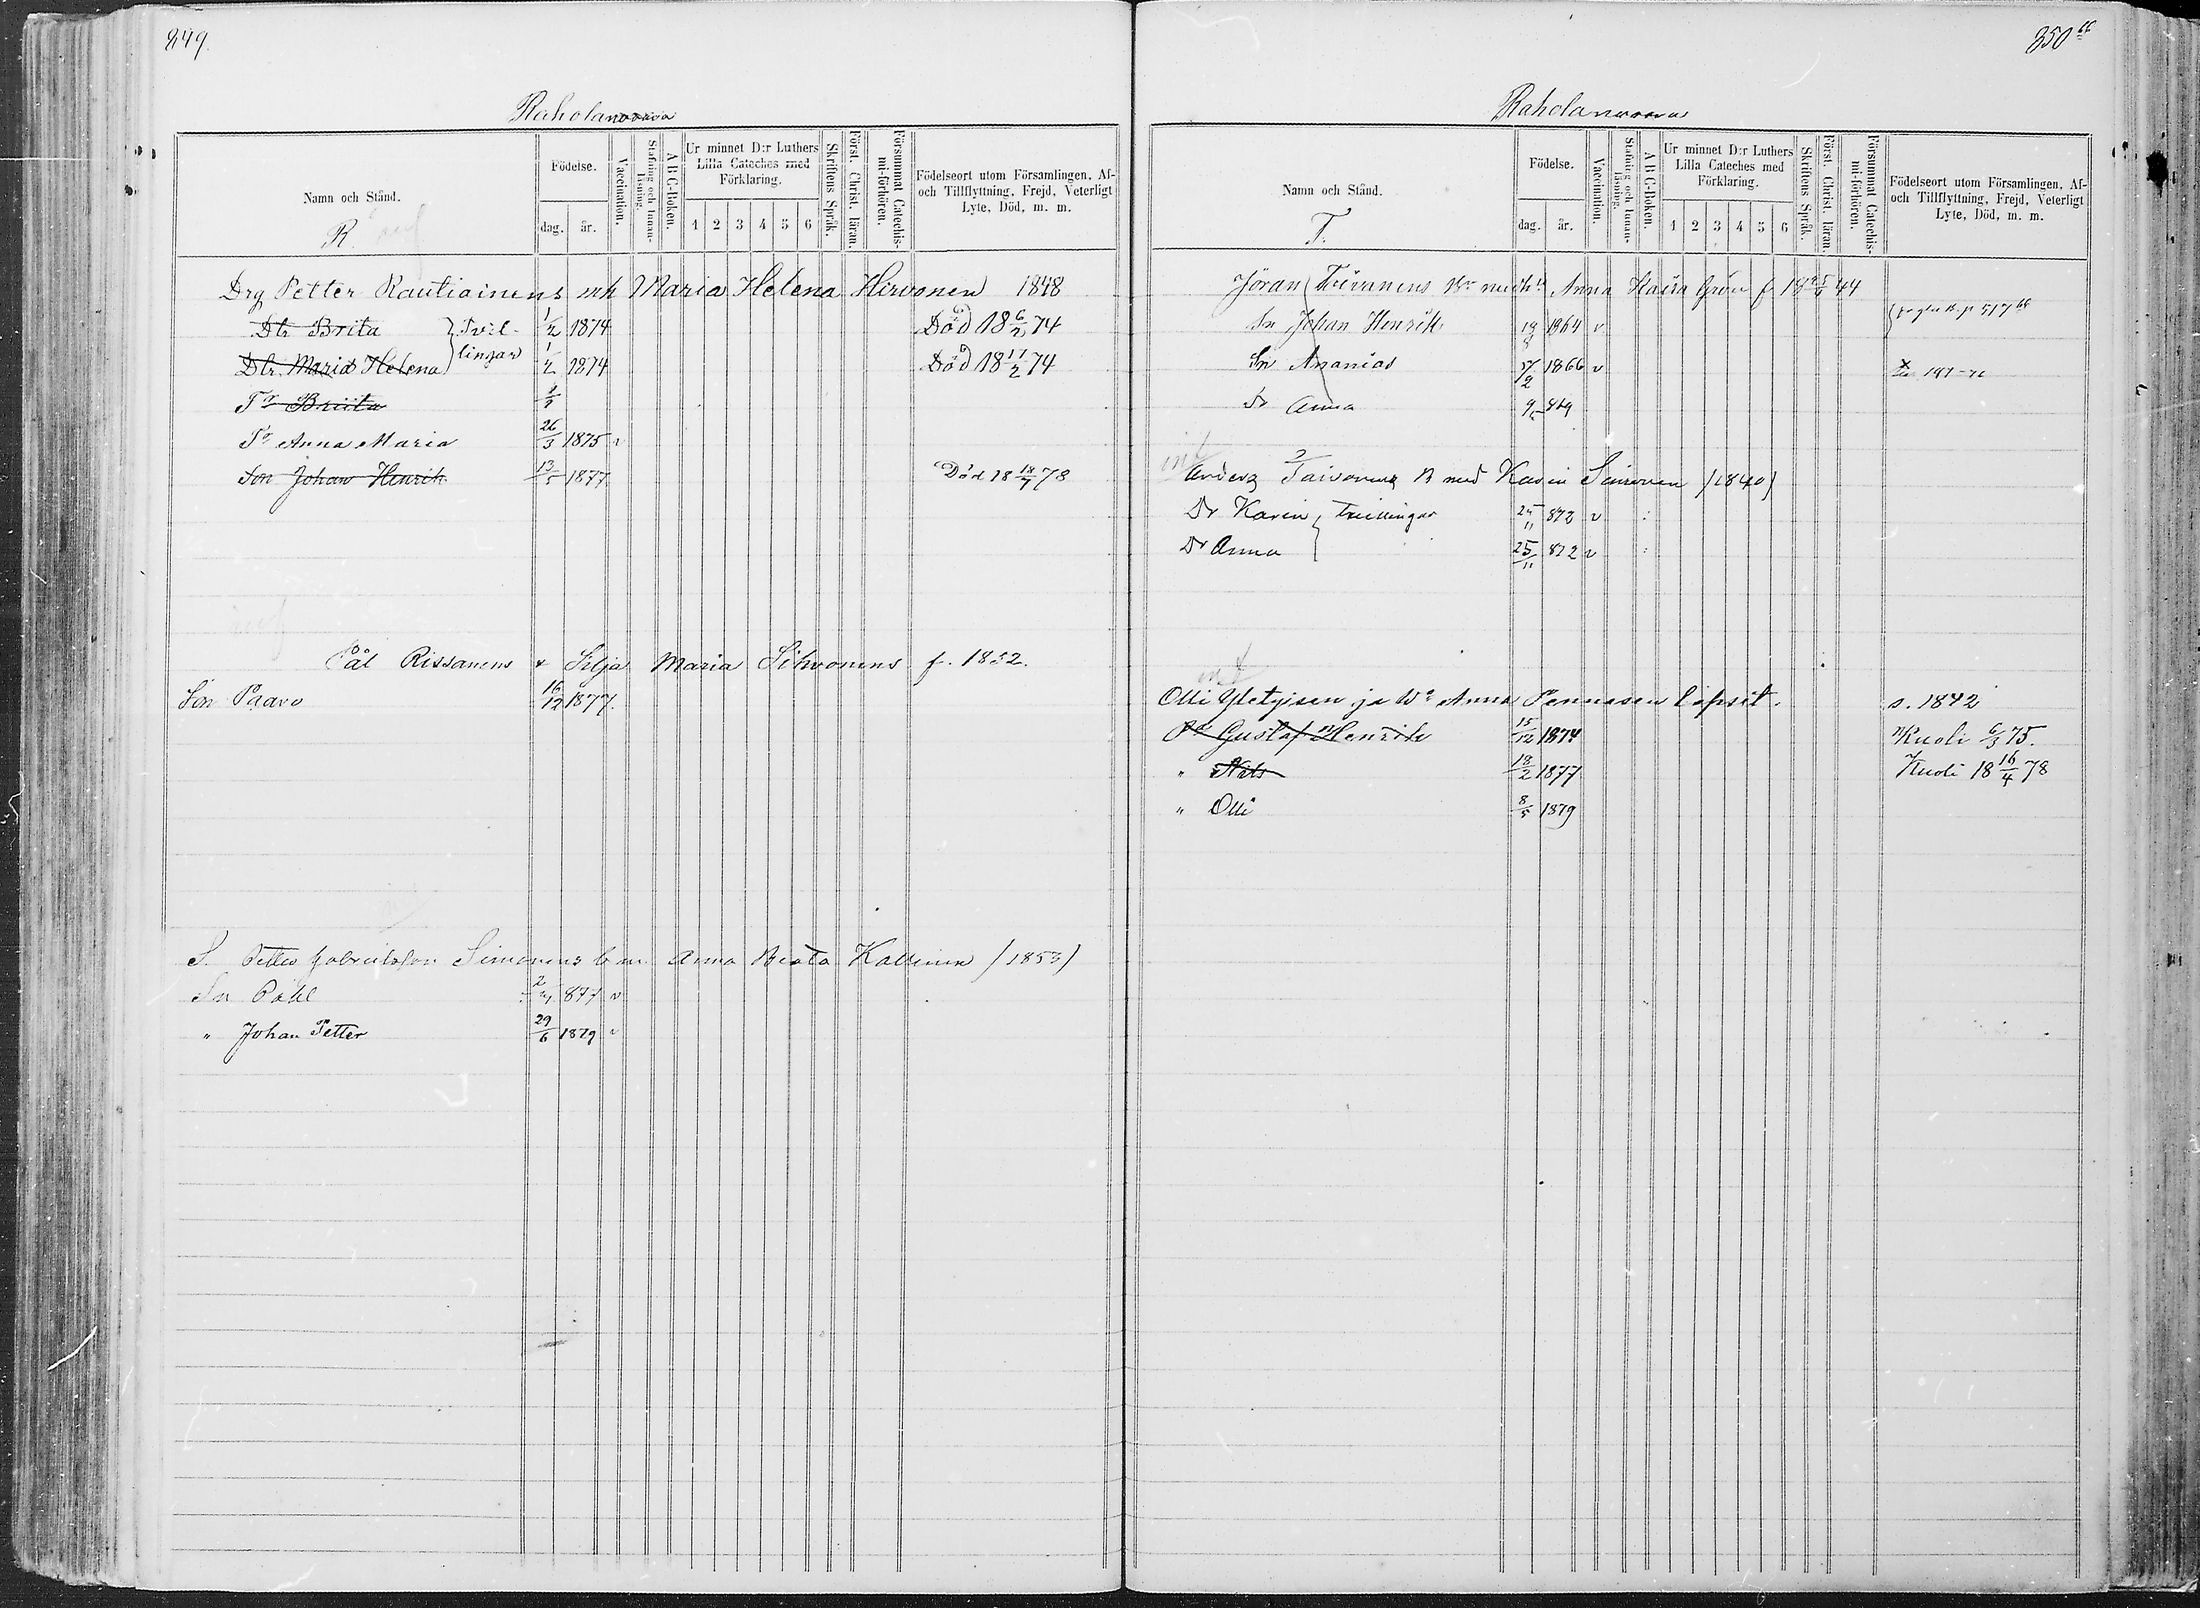 849.
Raholanvaara
Namn och Stånd.
R.
Födelse.
dag.
år.
Vaccination.
Stafning och Innan-läsning.
A B C-Boken.
Ur minnet D:r Luthers Lilla Cateches med Förklaring.
1 2 3 4 5 6
Skriftens Språk.
Först. Christ. läran.
Försummat Catechis-mi-förhören.
Födelseort utom Församlingen, Af- och Tillflyttning, Frejd, Veterligt Lyte, Död, m. m.
Drg Petter Rautiainens mh Maria Helena Hirvonen 1848
Dtr Brita } Tvil- 1/2 1874 Död 18 6/2 74
Dtr Maria Helena } lingar 1/2 1874 Död 18 17/2 74
Tr Briita
Tr Anna Maria 26/3 1875 v
Son Johan Henrik 13/5 1877 Död 18 18/7 78
Pål Rissanens & Silja Maria Sihvonens f. 1852.
Son Paavo 16/12 1877.
S. Petter Gabrielsson Simonens b m Anna Beata (1853)
Sn Påhl 877 v
" Johan Petter 29/6 1879 v
350
Raholanvaara
Namn och Stånd.
T.
Födelse.
dag.
år.
Vaccination.
Stafning och Innan-läsning.
A B C-Boken.
Ur minnet D:r Luthers Lilla Cateches med Förklaring.
1 2 3 4 5 6
Skriftens Språk.
Först. Christ. läran.
Försummat Catechis-mi-förhören.
Födelseort utom Församlingen, Af- och Tillflyttning, Frejd, Veterligt Lyte, Död, m. m.
Jöran Toivanens Anna Kaisa f 18 44
Sn Johan Henrik 1864 v
Sn Ananias 1866 v
Dr Anna 869
Anders Taivonens B med Karin (1840)
Dr Karin } tvillingar 25/11 872 v
Dr Anna } 25/11 872 v
Olli ja Wo Anna Pennasen lapset. s. 1842
Pa Gustaf Henrik 15/12 1874 Kuoli 6/3 75.
" Nils 18/2 1877 Kuoli 18 16/4 78
" Olli 8/5 1879